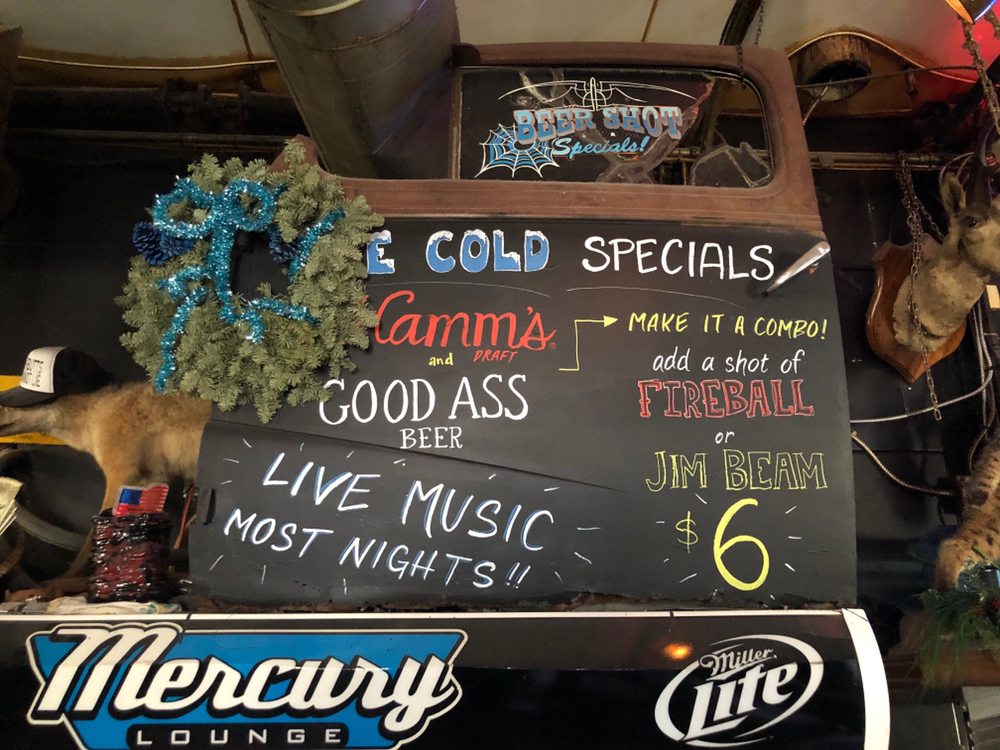 BEER SHOT
Specials!
E COLD SPECIALS
Hamm's
and DRAFT
GOOD ASS
BEER
MAKE IT A COMBO!
add a shot of
FIREBALL
or
JIM BEAM
$6
LIVE MUSIC
MOST NIGHTS!!
Mercury
LOUNGE
Miller
Lite